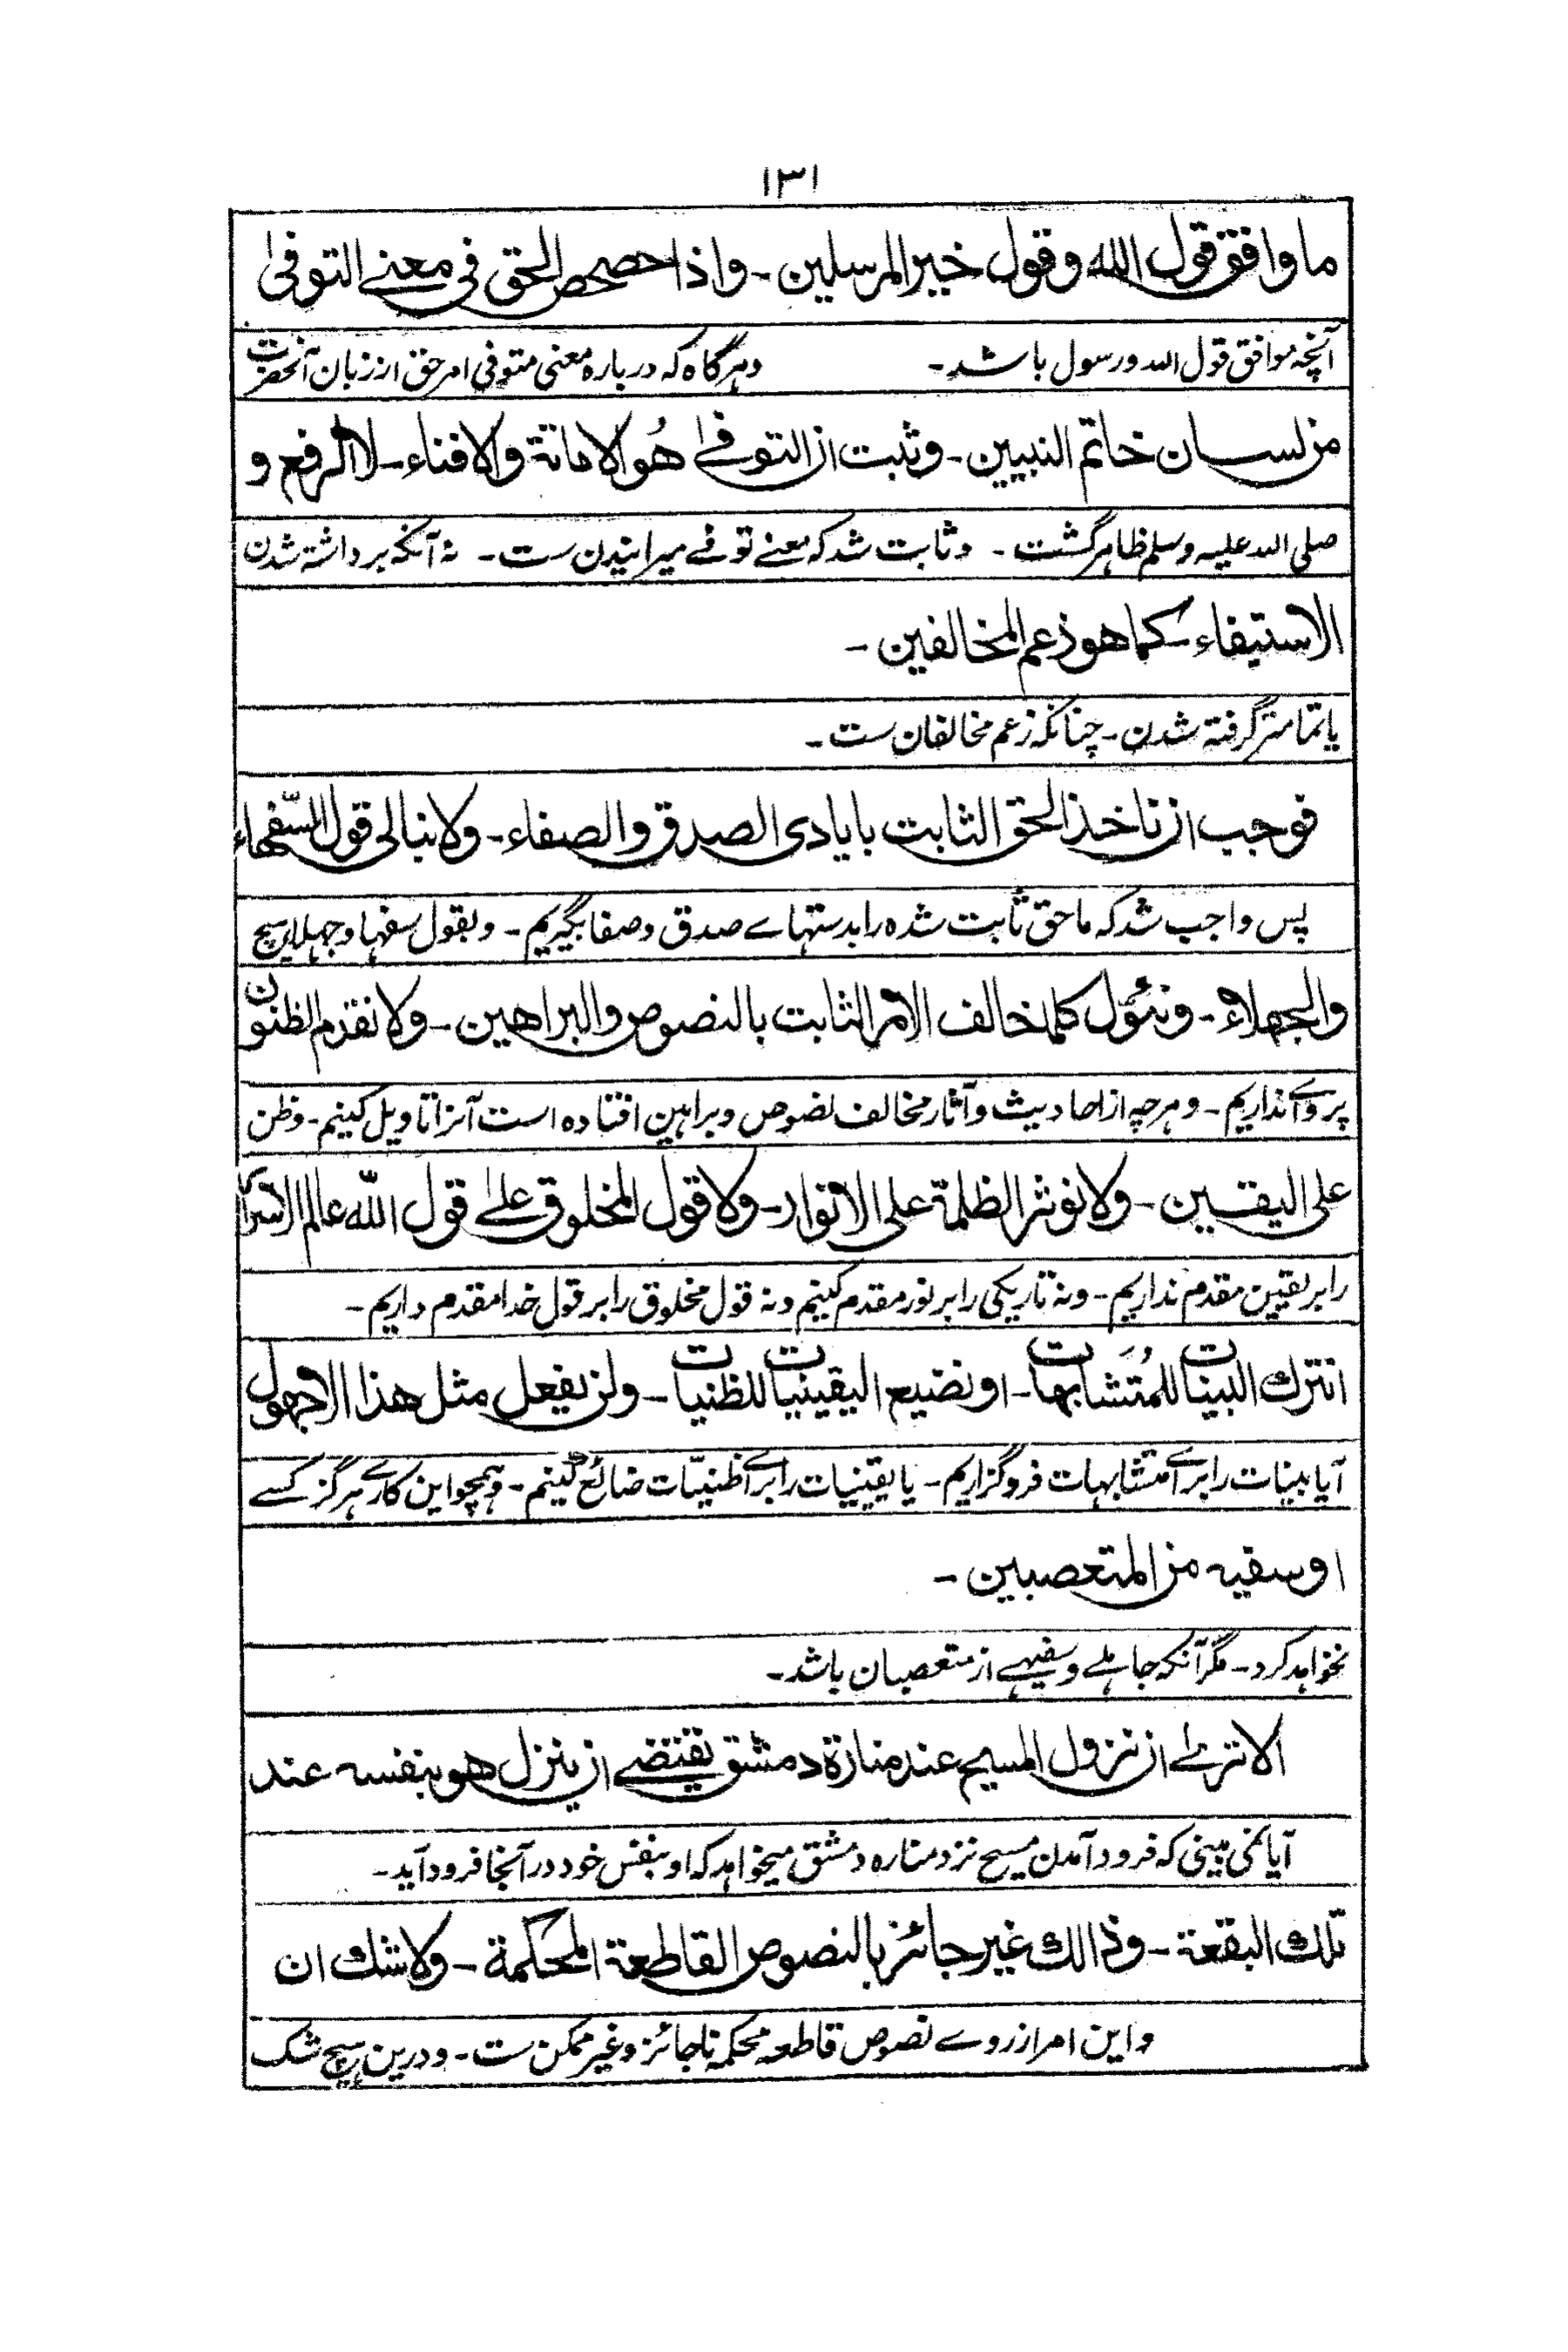 ١٣١
ما وافق قول الله وقول خير المرسلين ـ واذا حصحص الحق فى معنے التوفى
آنچہ موافق قول اللہ و رسول باشد ـ وہرگاہ کہ دربارہ معنی متوفی امر حق از زبان آنحضرت
من لسان خاتم النبيين ـ وثبت ان التوفے هُو الاماتة والافناء ـ لا الرفع و
صلی اللہ علیہ وسلم ظاہر گشت ـ وثابت شد کہ معنے توفے میرانیدن ست ـ نہ آنکہ برداشتہ شدن
الاستيفاء كما هو زعم المخالفين ـ
یا تمامتر گرفتہ شدن ـ چنانکہ زعم مخالفان ست ـ
فوجب ان ناخذ الحق الثابت بايادى الصدق والصفاء ـ ولا نبالى قول السّفهاء
پس واجب شد کہ ما حق ثابت شدہ را بدستہاے صدق وصفا بگیریم ـ وبقول سفہا وجہلا ہیچ
والجهلاء ـ ونئوّل كلما خالف الامر الثابت بالنصوص والبراهين ـ ولا نقدم الظنون
پروائے نداریم ـ وہرچہ از احادیث وآثار مخالف نصوص وبراہین افتادہ است آنرا تاویل کنیم ـ وظن
على اليقين ـ ولا نوثر الظلمة على الانوار ـ ولا قول المخلوق علےٰ قول اللّٰه عالم الاسرار
را بر یقین مقدم نداریم ـ ونہ تاریکی را بر نور مقدم کنیم ونہ قول مخلوق را بر قول خدا مقدم داریم ـ
انترك البينات للمُتَشابهات ـ او نضيع اليقينيات للظنيات ـ ولن يفعل مثل هذا الا جهول
آیا بینات را برائے متشابہات فروگزاریم ـ یا یقینیات را برائے ظنیّات ضائع کنیم ـ وہمچو این کارے ہرگز کسے
او سفيه من المتعصبين ـ
نخواہد کرد ـ مگر آنکہ جاہلے وسفیہے از متعصبان باشد ـ
الا ترےٰ ان نزول المسيح عند منارة دمشق يقتضے ان ينزل هو بنفسه عند
آیا نمی بینی کہ فرود آمدن مسیح نزد منارہ دمشق میخواہد کہ او بنفس خود در آنجا فرود آید ـ
تلك البقعة ـ وذالك غير جائز بالنصوص القاطعة المحكمة ـ ولا شك ان
واین امر از روے نصوص قاطعہ محکمہ ناجائز وغیر ممکن ست ـ ودرین ہیچ شک